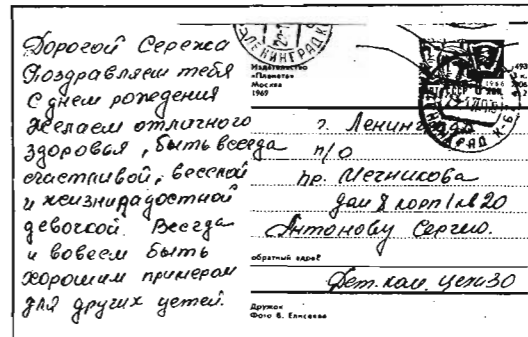 Дорогой Сережа
Поздравляем тебя
С днем рождения
желаем отличного
здоровья, быть всегда
счастливой, веселой
и жизнирадостной
девочкой. Всегда
и вовсем быть
хорошим примером
для других детей.
ЛЕНИНГРАД
Издательство
«Планета»
Москва
1969
1966
ЛЕНИНГРАД К-6
г. Ленинград
п/о
пр. Мечникова
дом 8 корп 1 кв 20
Антонову Сергею.
обратный адрес
Дет. ком. цех 30
Дружок
Фото В. Елисеева